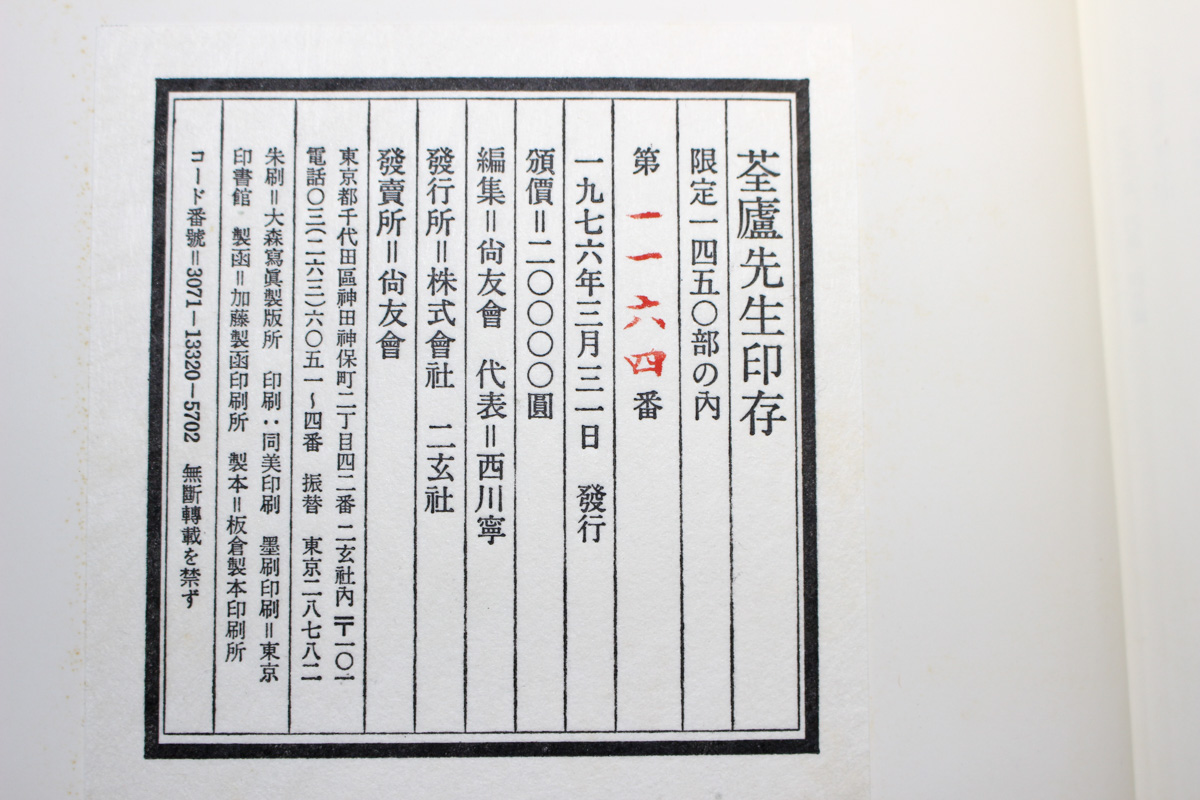 荃廬先生印存
限定一四五〇部の內
第一一六四番
一九七六年三月三一日 發行
頒價＝二〇〇〇〇圓
編集＝尙友會 代表＝西川寧
發行所＝株式會社 二玄社
發賣所＝尙友會
東京都千代田區神田神保町二丁目四二番 二玄社內 〒一〇一
電話〇三(二六三)六〇五一〜四番 振替 東京二八七八二
朱刷＝大森寫眞製版所 印刷：同美印刷 墨刷印刷＝東京
印書館 製函＝加藤製函印刷所 製本＝板倉製本印刷所
コード番號＝3071−13320−5702 無斷轉載を禁ず